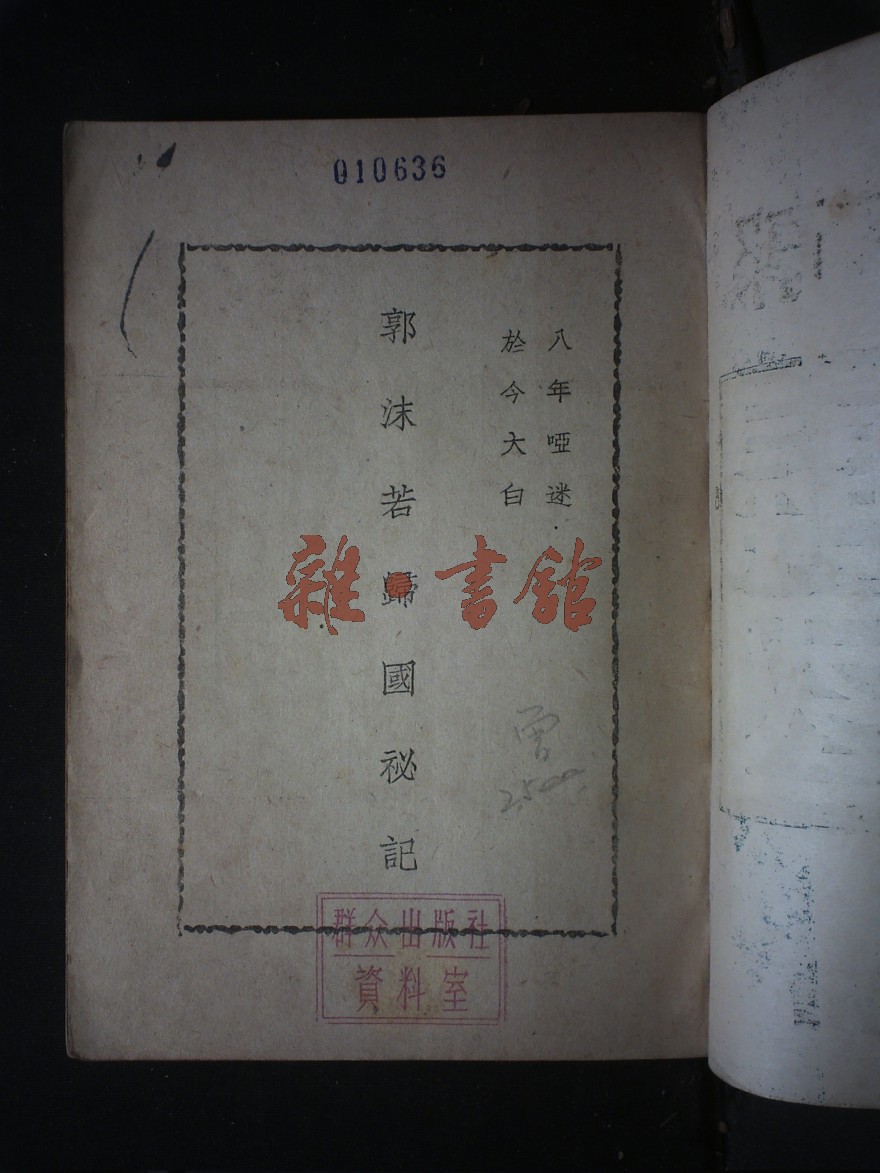 010636
八年啞迷·
於今大白
郭沫若歸國祕記
雜·書舘
曾
2500.
群众出版社
資料室